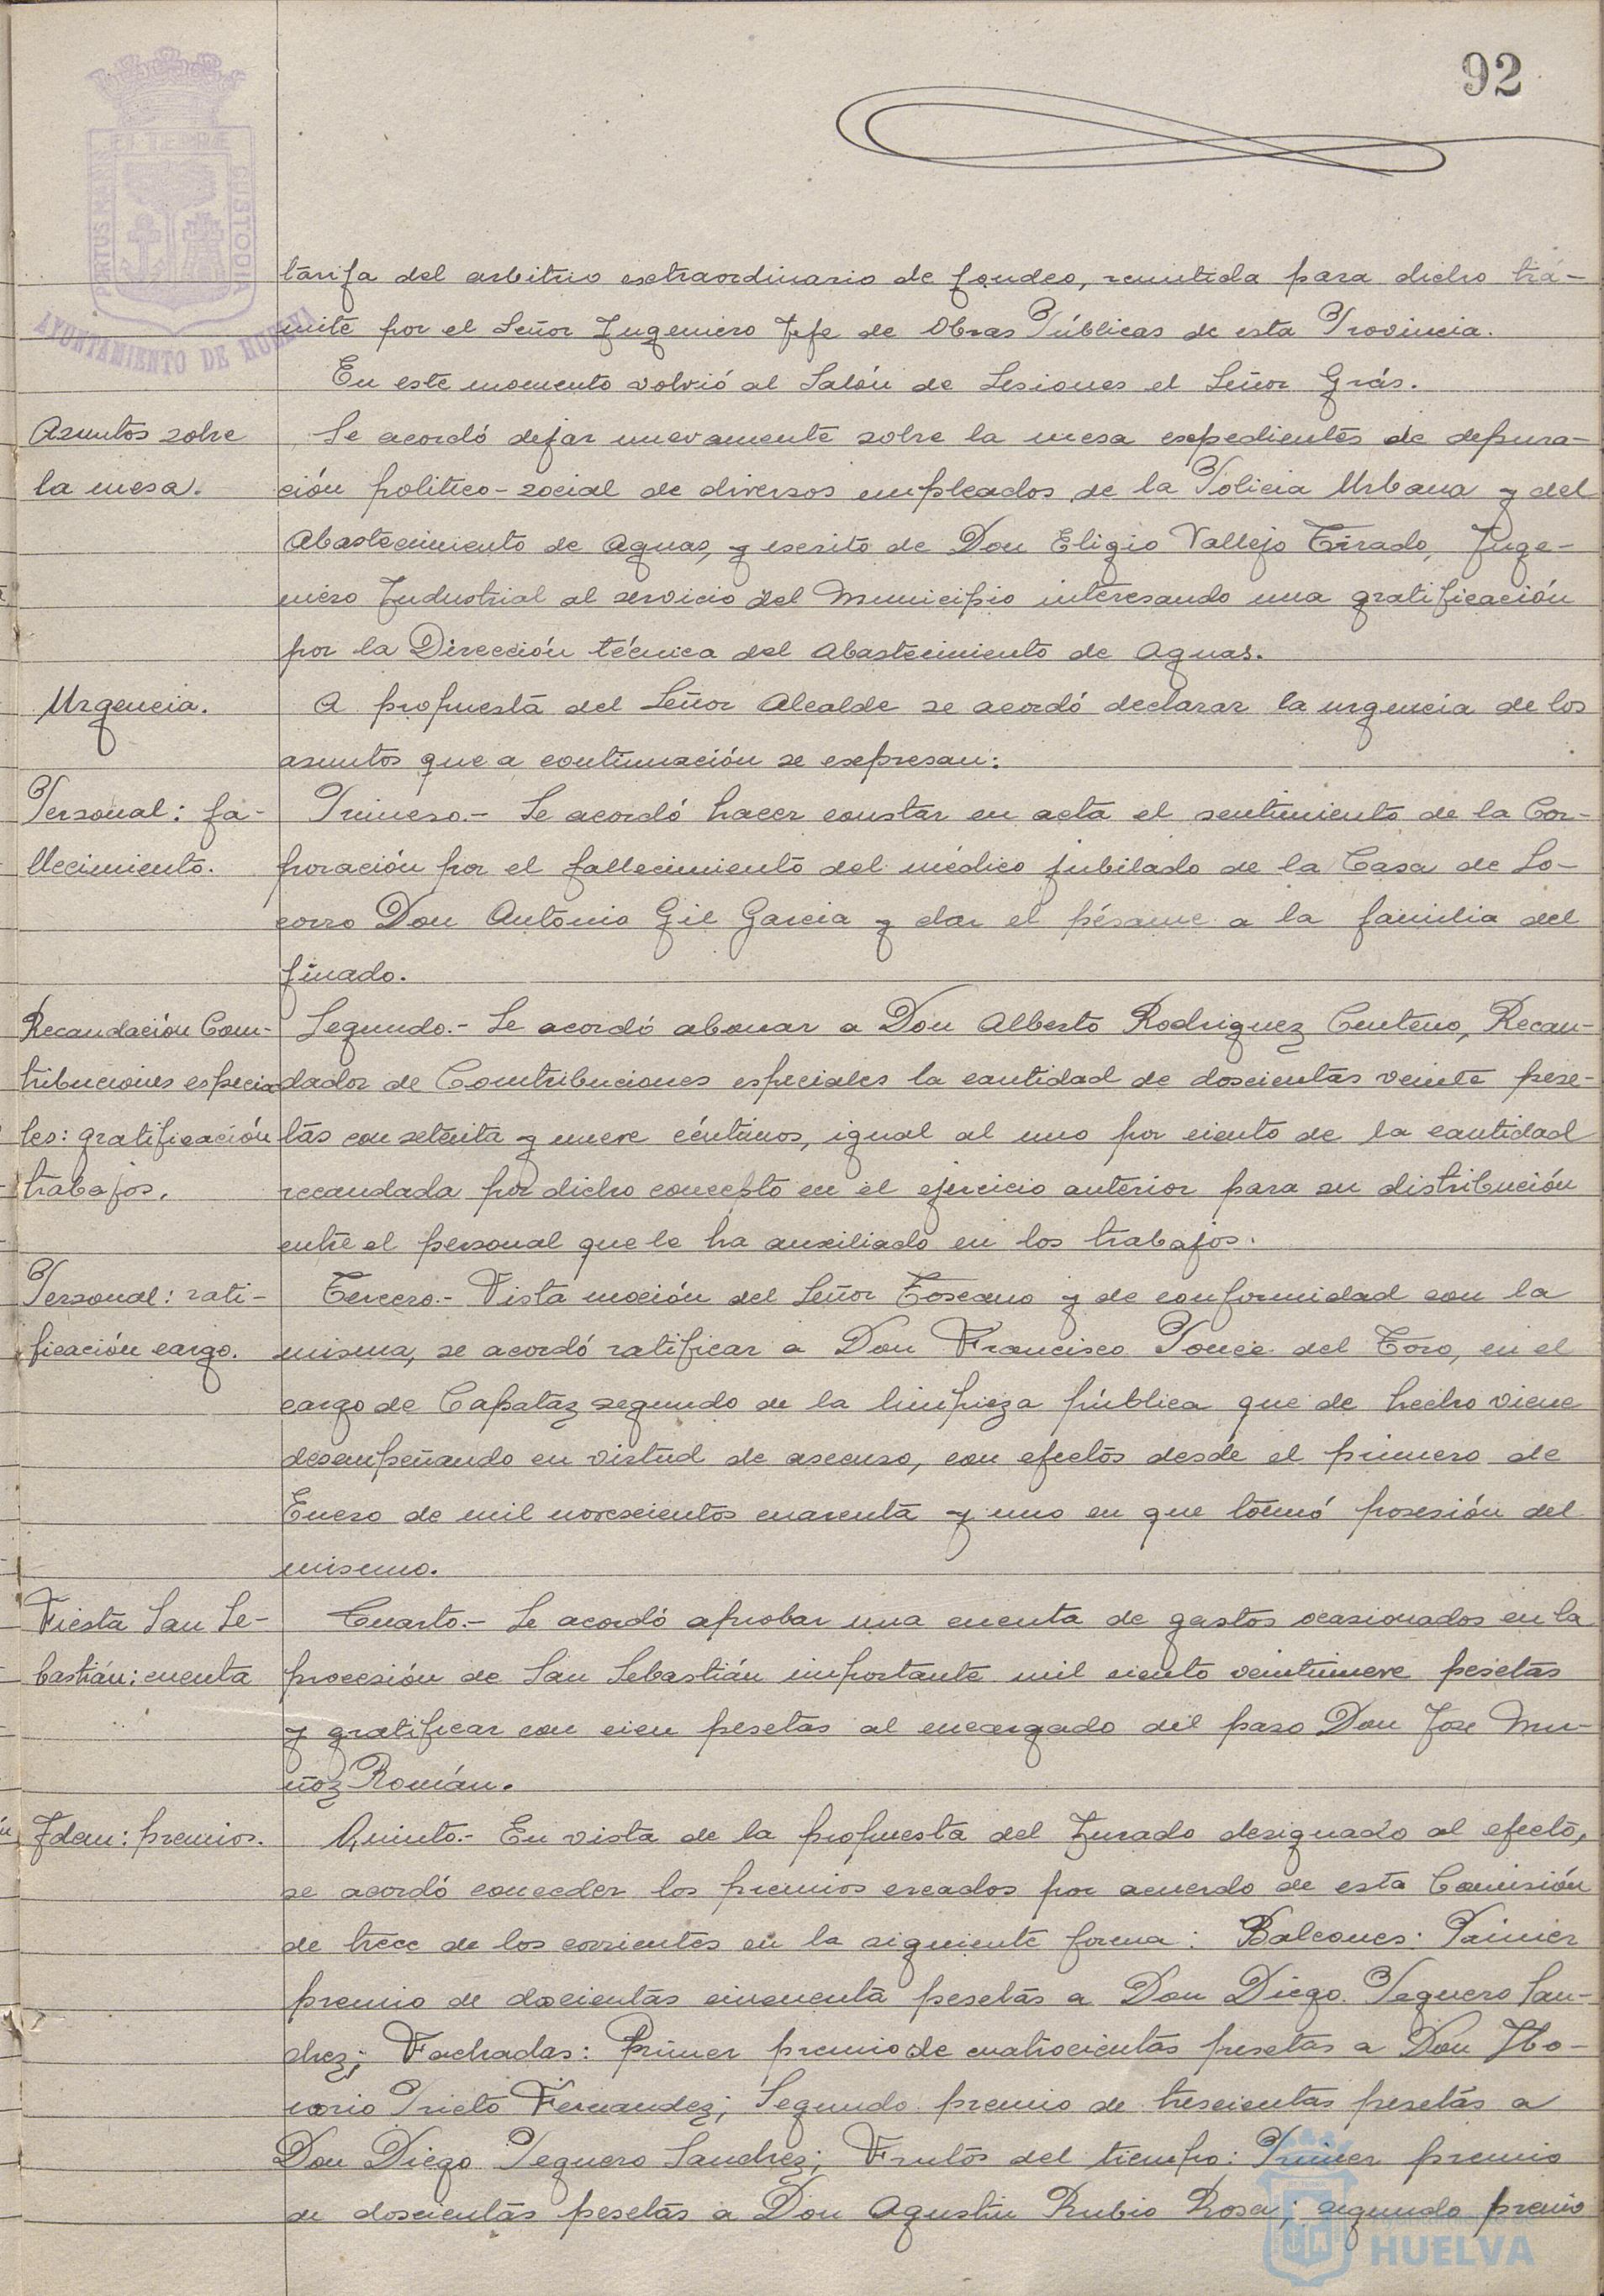 92
PORTUS MARIS ET TERRE CUSTODIA
AYUNTAMIENTO DE HUELVA
tarifa del arbitrio extraordinario de fondeo, remitida para dicho trá-
mite por el Señor Ingeniero Jefe de Obras Públicas de esta Provincia.
En este momento volvió al Salón de Sesiones el Señor Grás.
Asuntos sobre
la mesa.
Se acordó dejar nuevamente sobre la mesa expedientes de depura-
ción politico-social de diversos empleados de la Policia Urbana y del
Abastecimiento de Aguas, y escrito de Don Eligio Vallejo Tirado, Inge-
niero Industrial al servicio del Municipio interesando una gratificación
por la Dirección técnica del Abastecimiento de Aguas.
Urgencia.
A propuesta del Señor Alcalde se acordó declarar la urgencia de los
asuntos que a continuación se expresan:
Personal: fa-
llecimiento.
Primero.- Se acordó hacer constar en acta el sentimiento de la Cor-
poración por el fallecimiento del médico jubilado de la Casa de So-
corro Don Antonio Gil Garcia y dar el pésame a la familia del
finado.
Recaudación Con-
tribuciones especia
les: gratificación
trabajos.
Segundo.- Se acordó abonar a Don Alberto Rodriguez Centeno, Recau-
dador de Contribuciones especiales la cantidad de doscientas veinte pese-
tas con setenta y nueve céntimos, igual al uno por ciento de la cantidad
recaudada por dicho concepto en el ejercicio anterior para su distribución
entre el personal que le ha auxiliado en los trabajos.
Personal: rati-
ficación cargo.
Tercero.- Vista moción del Señor Toscano y de conformidad con la
misma, se acordó ratificar a Don Francisco Ponce del Toro, en el
cargo de Capataz segundo de la limpieza pública que de hecho viene
desempeñando en virtud de ascenso, con efectos desde el primero de
Enero de mil novescientos cuarenta y uno en que tomó posesión del
mismo.
Fiesta San Se-
bastián: cuenta
Cuarto.- Se acordó aprobar una cuenta de gastos ocasionados en la
procesión de San Sebastián importante mil ciento veintinueve pesetas
y gratificar con cien pesetas al encargado del paso Don Jose Mu-
ñoz Román.
Idem: premios.
Quinto.- En vista de la propuesta del Jurado designado al efecto,
se acordó conceder los premios creados por acuerdo de esta Comisión
de trece de los corrientes en la siguiente forma: Balcones: Primer
premio de doscientas cincuenta pesetas a Don Diego Peguero San-
chez; Fachadas: Primer premio de cuatrocientas pesetas a Don Ho-
norio Prieto Fernandez; Segundo premio de trescientas pesetas a
Don Diego Peguero Sanchez; Frutos del tiempo: Primer premio
de doscientas pesetas a Don Agustin Rubio Rosa; segundo premio
HUELVA